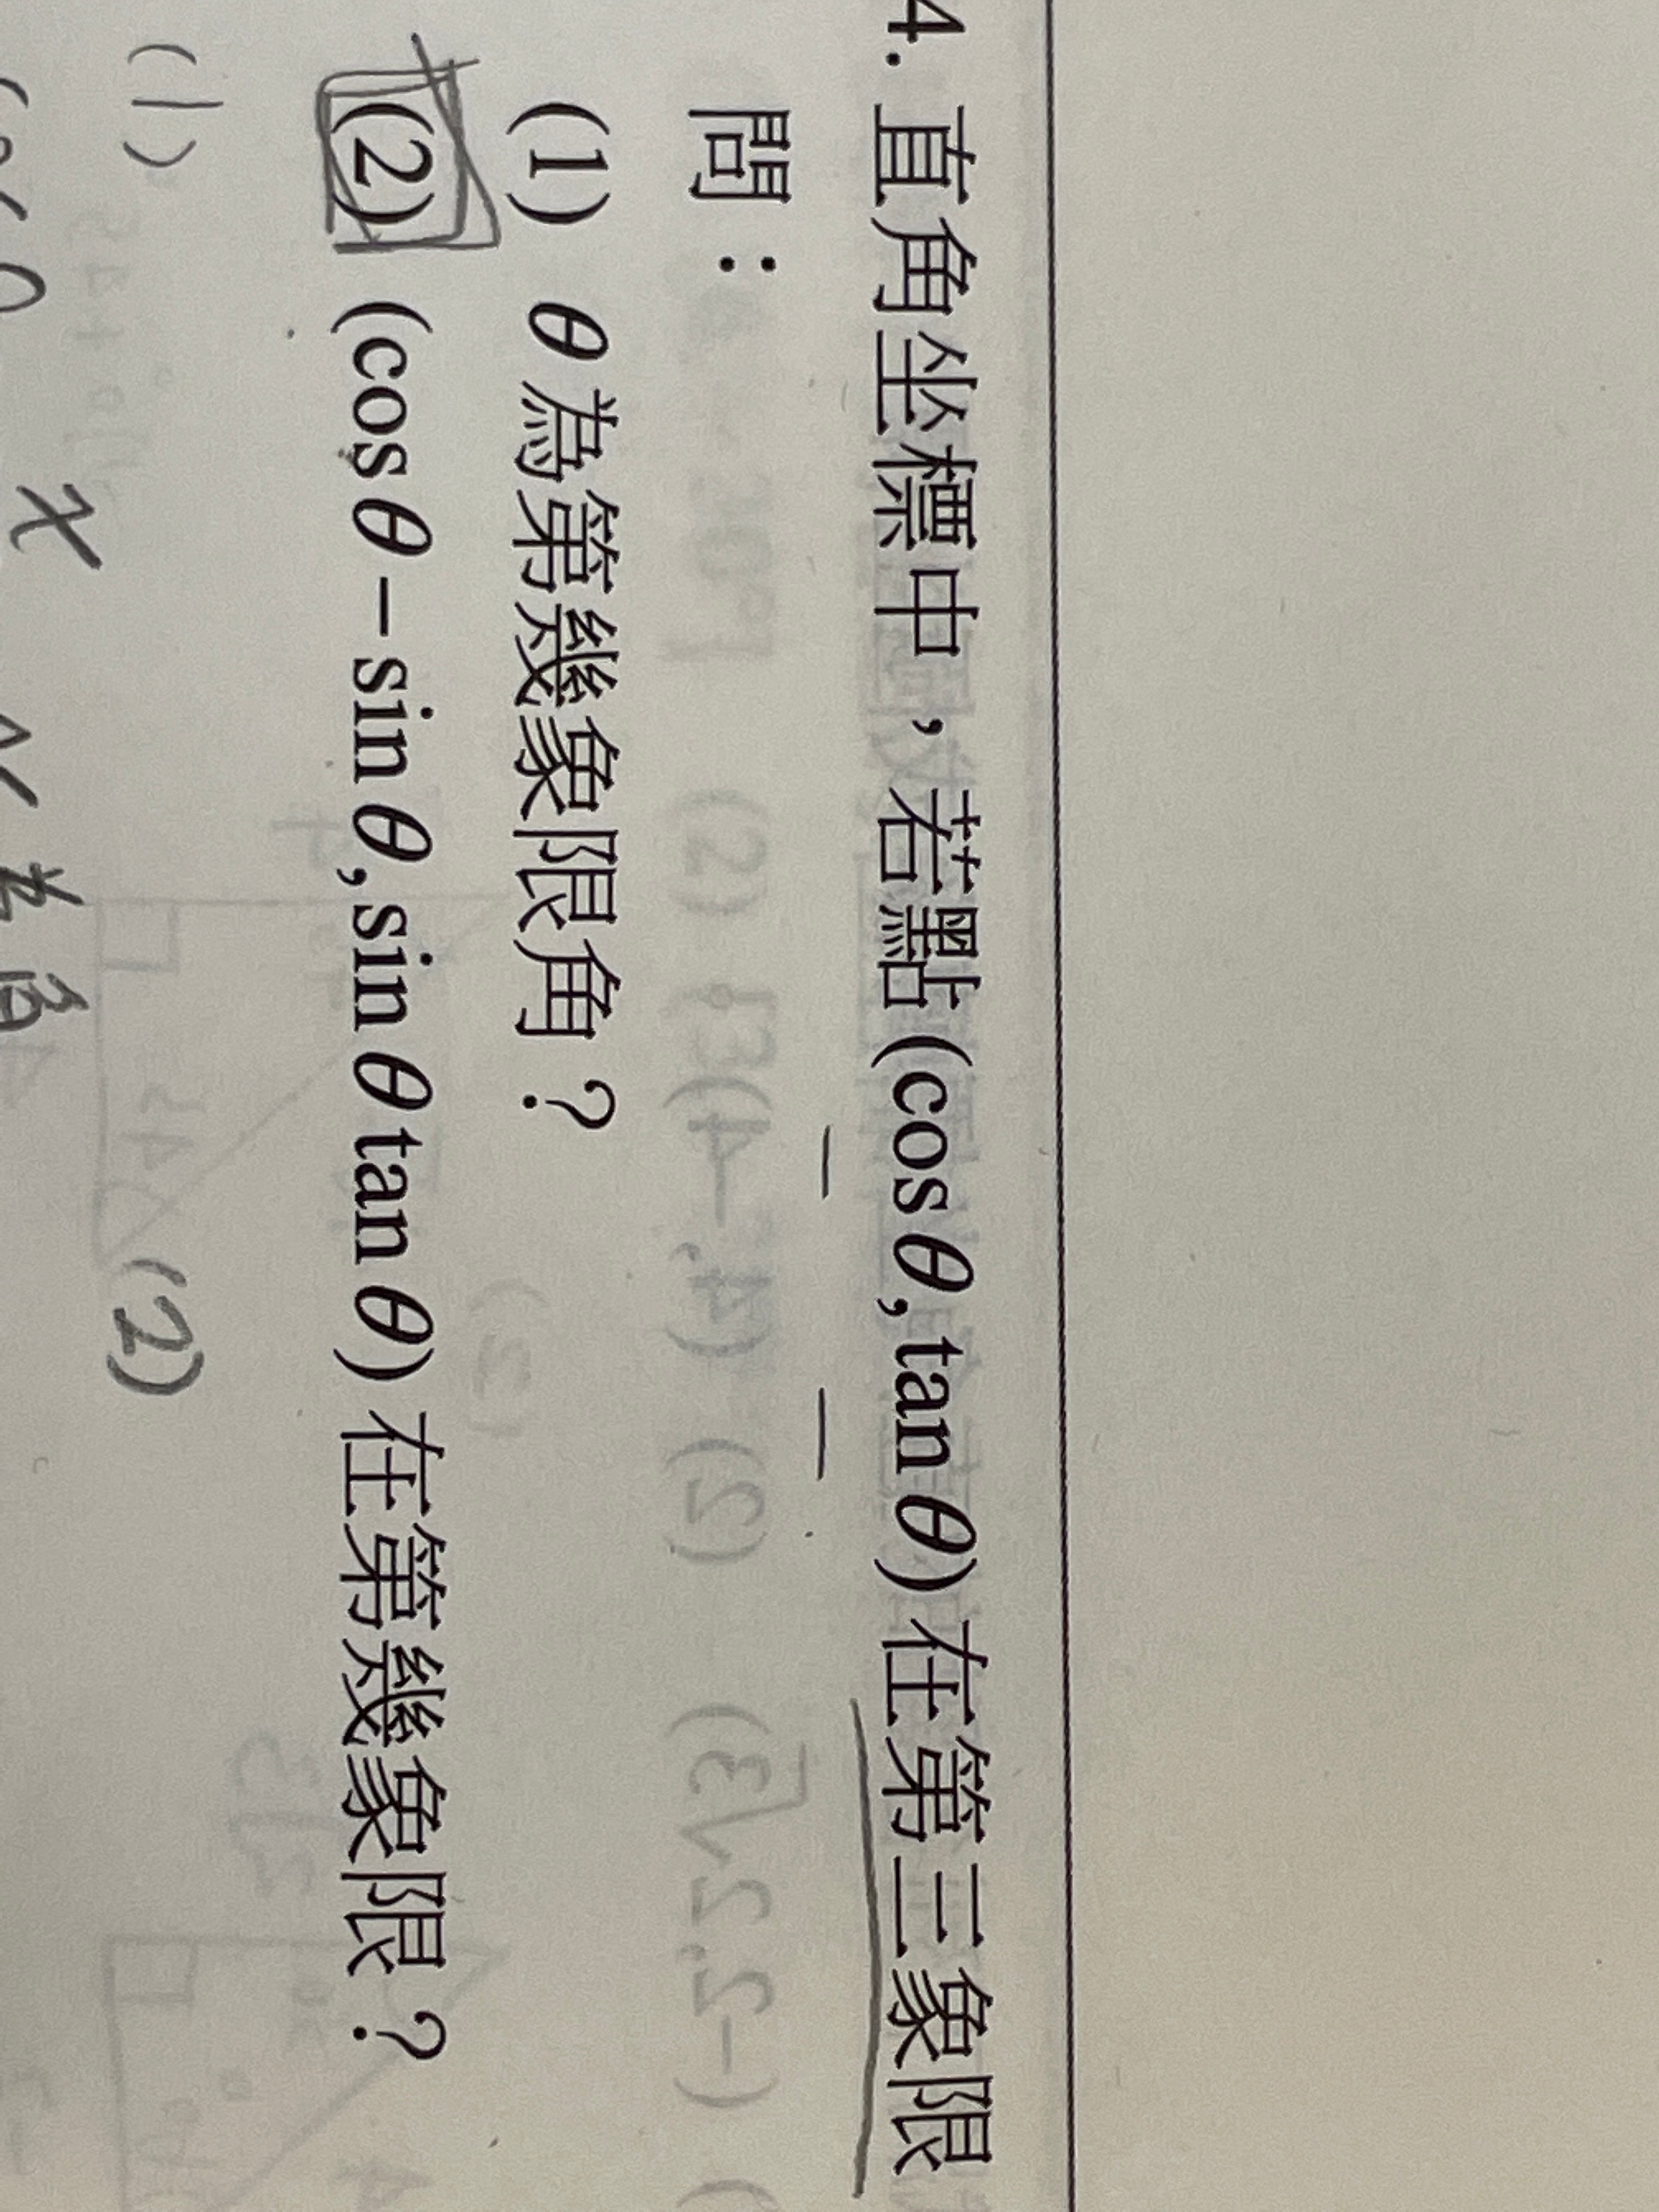 4. 直角坐標中，若點(cosθ,tanθ)在第三象限
問：
(1) θ為第幾象限角？
(2) (cosθ−sinθ,sinθ tanθ)在第幾象限？
(1)
(2)